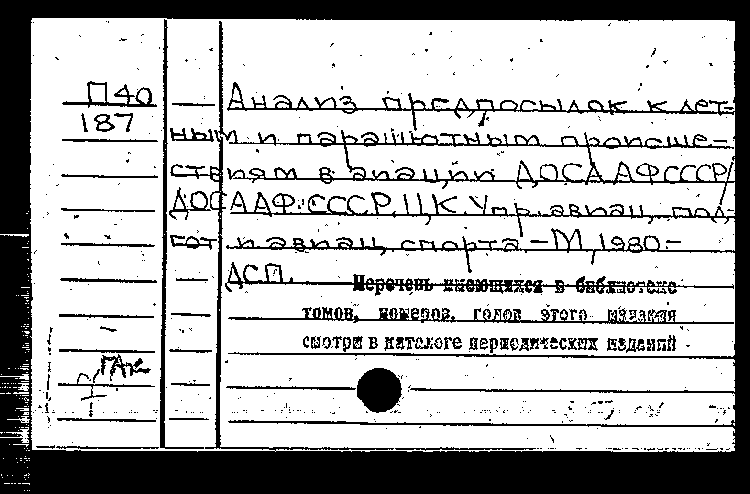 П40 Анализ предпосылок к лет-
187 ным и парашютным происше-
ствиям в авиации ДОСААФ СССР/
ДОСААФ СССР. ЦК. Упр. авиац. под-
гот. и авиац. спорта - М., 1980-
ДСП.
Перечень имеющихся в библиотеке
томов, номеров, годов этого издания
смотри в каталоге периодических изданий
ГАК